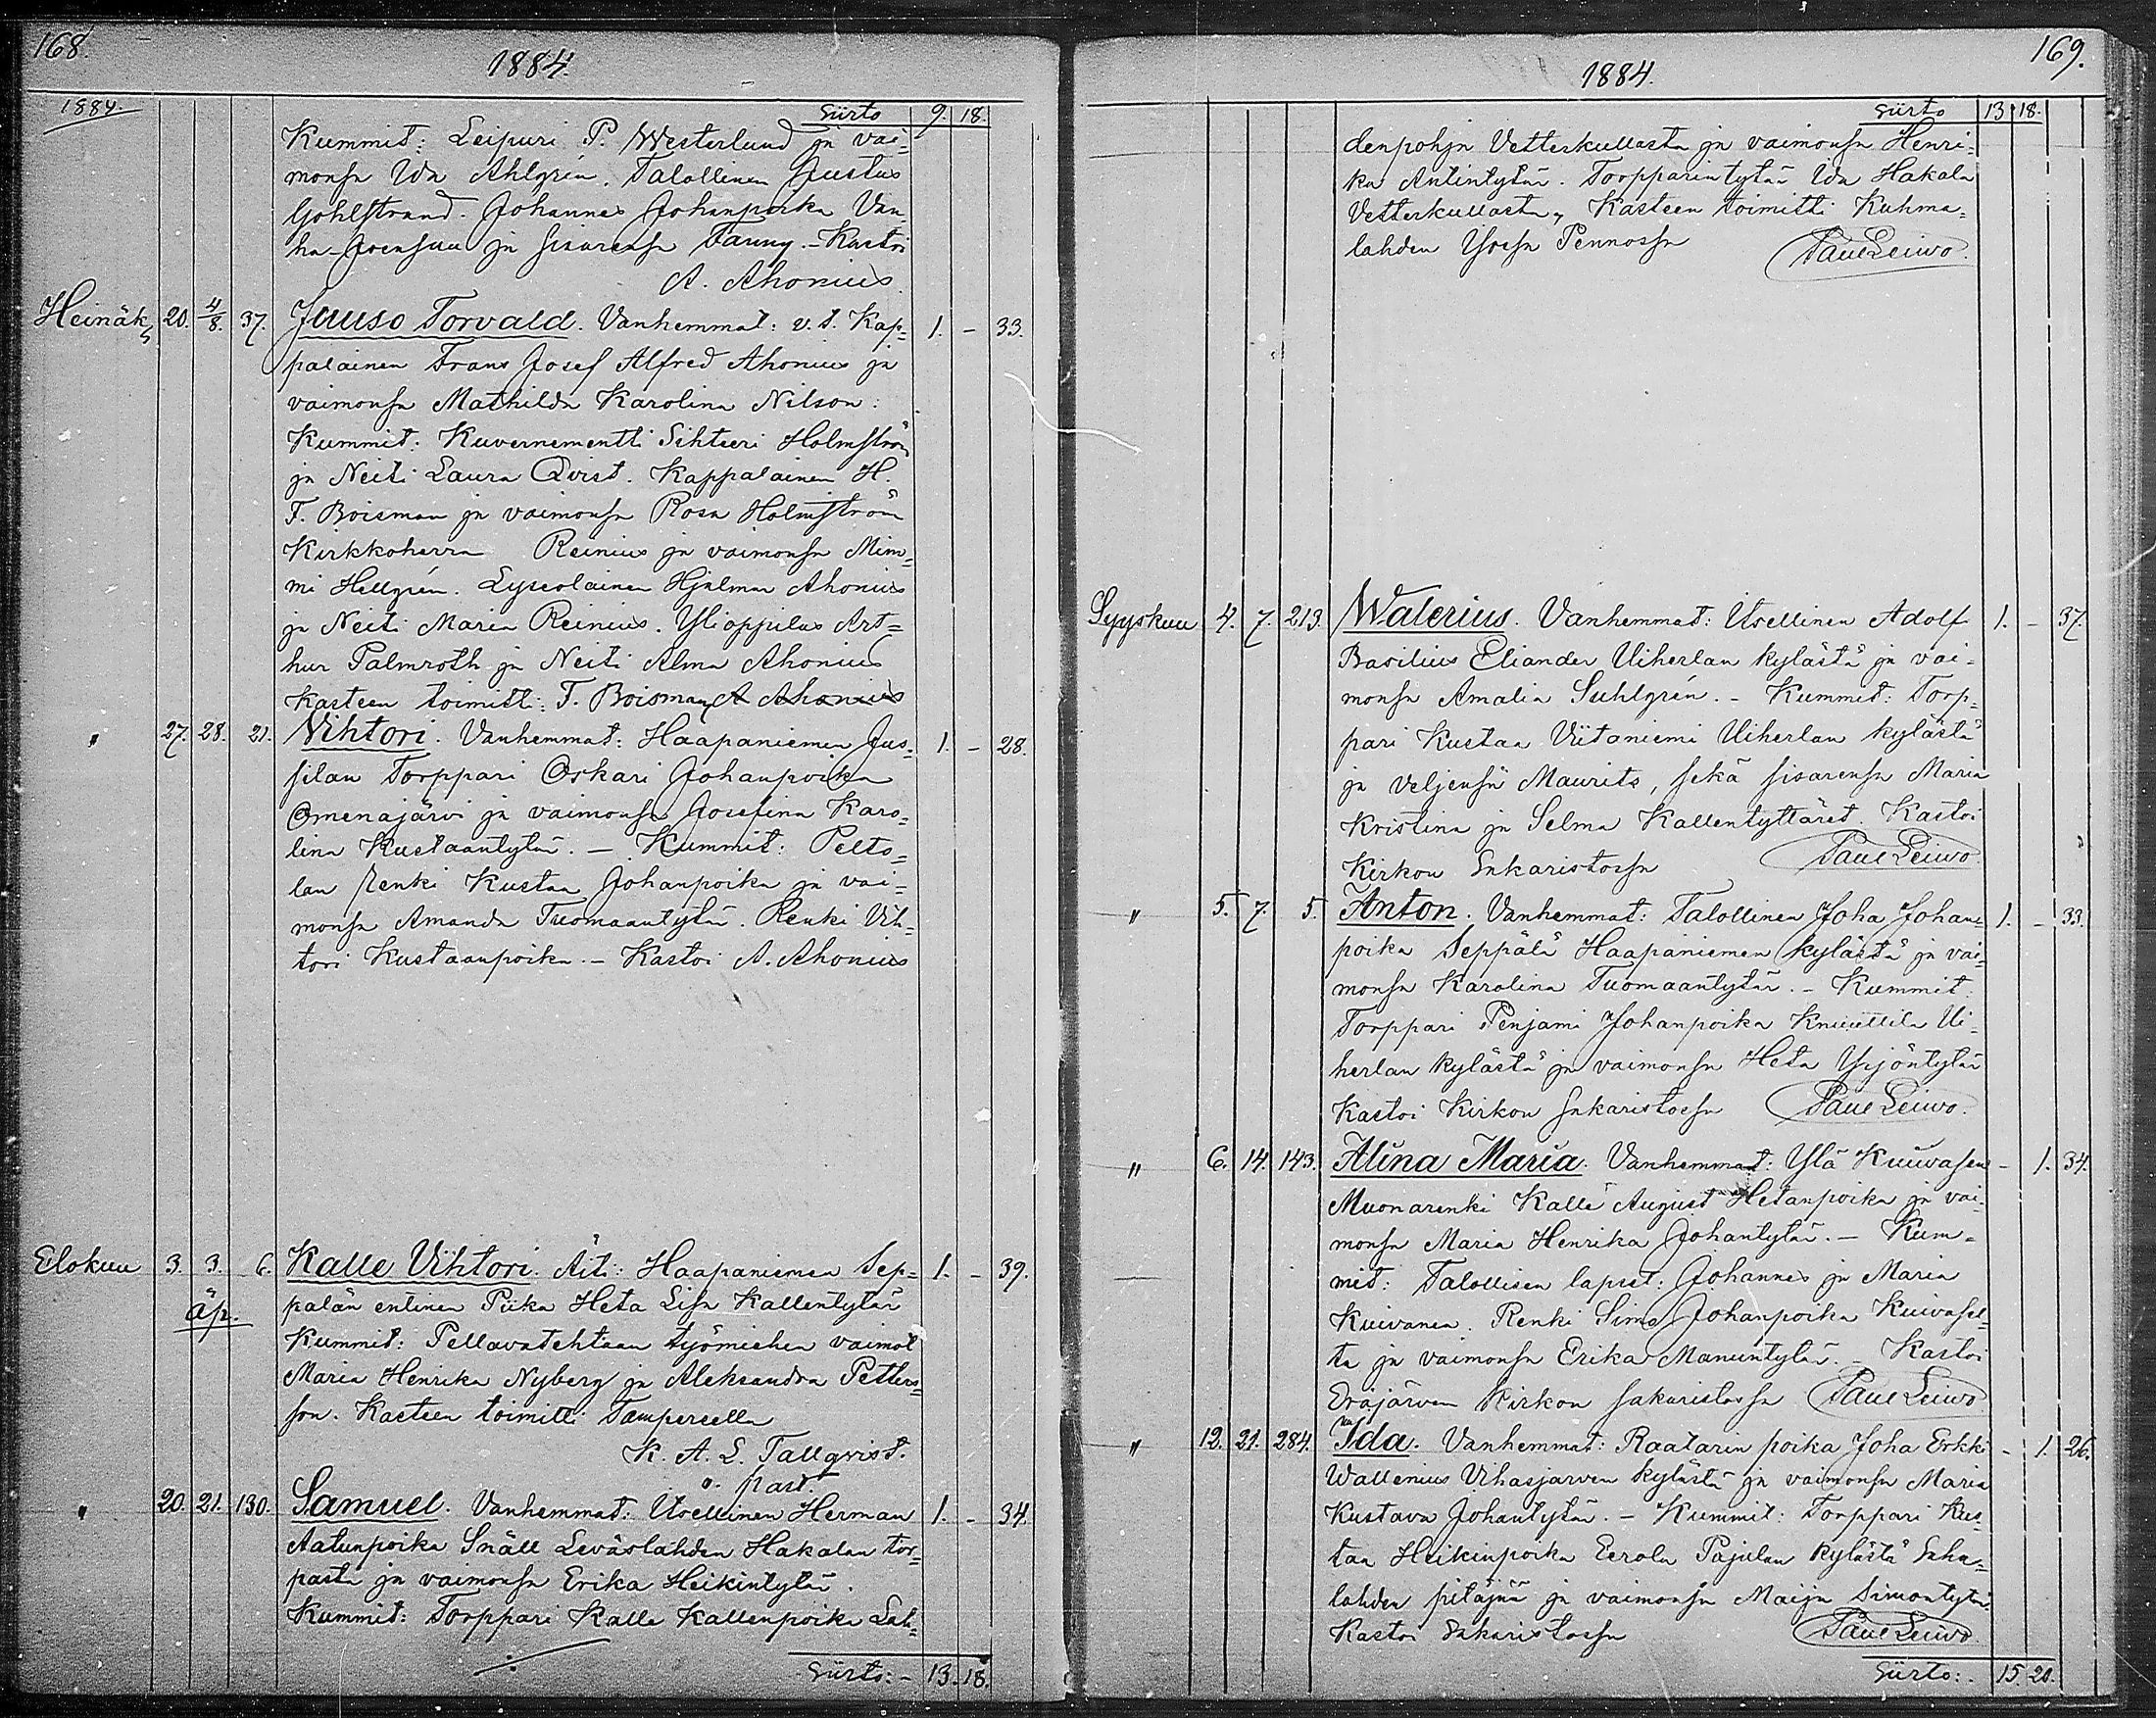 168.
1884.
1884. Siirto 9. 18.
Kummit: Leipuri P. Westerlund ja vai=
monsa Ida Ahlgrén. Talollinen Justus
Gohlstrand. Johannes Johanpoika Van=
ha-Joensuu ja sisarensa Fanny. - Kastoi
A. Ahonius.
Heinäk. 20. 4/8. 37. Juuso Torvald. Vanhemmat: v. t. Kap= 1. - 33.
palainen Frans Josef Alfred Ahonius ja
vaimonsa Mathilda Karolina Nilson:
Kummit: Kuvernementti Sihteeri Holmström
ja Neiti Laura Qvist. Kappalainen H.
F. Boisman ja vaimonsa Rosa Holmström
Kirkkoherra Reinius ja vaimonsa Mim=
mi Hellgrén. Lyseolainen Hjalmar Ahonius
ja Neiti Maria Reinius. Ylioppilas Art=
hur Palmroth ja Neiti Alma Ahonius
Kasteen toimitti: F. Boisman A Ahonius
" 27. 28. 21. Vihtori. Vanhemmat: Haapaniemen Jus= 1. - 28.
silan Torppari Oskari Johanpoika
Omenajärvi ja vaimonsa Josefina Karo=
lina Kustaantytär. - Kummit: Pelto=
lan renki Kustaa Johanpoika ja vai=
monsa Amanda Tuomaantytär. Renki Vih=
tori Kustaanpoika. - Kastoi A. Ahonius
Elokuu 3. 3. 6. Kalle Vihtori. Äiti: Haapaniemen Sep= 1. - 39.
äp. palän entinen Piika Heta Lisa Kallentytär
Kummit: Pellavatehtaan työmiehen vaimot
Maria Henrika Nyberg ja Aleksandra Petters=
son. Kasteen toimitti Tampereella
K. A. L. Tallqvist.
v. past.
" 20. 21. 130. Samuel. Vanhemmat: Itsellinen Herman 1. - 34.
Aatunpoika Snäll Leväslahden Hakalan tor=
pasta ja vaimonsa Erika Heikintytär.
Kummit: Torppari Kalle Kallenpoika Lah=
Siirto: - 13. 18.
169.
1884.
Siirto 13 18.
denpohja Vetterkullasta ja vaimonsa Henri=
ka Antintytär. Torpparintytär Ida Hakala
Vetterkullasta, Kasteen toimitti Kuhma=
lahden Ysessa Pennossa Paul Leiwo.
Syyskuu 4. 7. 213. Walerius. Vanhemmat: Itsellinen Adolf 1. - 37.
Basilius Eliander Uiherlan kylästä ja vai=
monsa Amalia Suhlgrén. - Kummit: Torp=
pari Kustaa Viitaniemi Uiherlan kylästä
ja veljensä Maurits, sekä sisarensa Maria
Kristina ja Selma Kallentyttäret. Kastoi
Kirkon Sakaristossa Paul Leiwo.
" 5. 7. 5. Anton. Vanhemmat: Talollinen Joha Johan= 1. - 33.
poika Seppälä Haapaniemen kylästä ja vai=
monsa Karolina Tuomaantytär. - Kummit:
Torppari Penjami Johanpoika Knuuttila Ui=
herlan kylästä ja vaimonsa Heta Yrjöntytär
Kastoi Kirkon sakaristossa Paul Leiwo.
" 6. 14. 143. Alina Maria. Vanhemmat: Ylä Kuivasen - 1. 34.
Muonarenki Kalle August Hetanpoika ja vai=
monsa Maria Henrika Johantytär. - Kum=
mit: Talollisen lapset: Johannes ja Maria
Kuivanen. Renki Simo Johanpoika Kuivasel=
ta ja vaimonsa Erika Manuntytär. - Kastoi
Eräjärven Kirkon sakaristossa Paul Leiwo
" 12. 21. 284. Ida. Vanhemmat: Raatarin poika Joha Erkki - 1. 26.
Wallenius Vihasjärven kylästä ja vaimonsa Maria
Kustava Johantytär. - Kummit: Torppari Kus=
taa Heikinpoika Eerola Pajulan kylästä Saha=
lahden pitäjää ja vaimonsa Maija Simontytär.
Kastoi Sakaristossa Paul Leiwo
Siirto: - 15. 20.